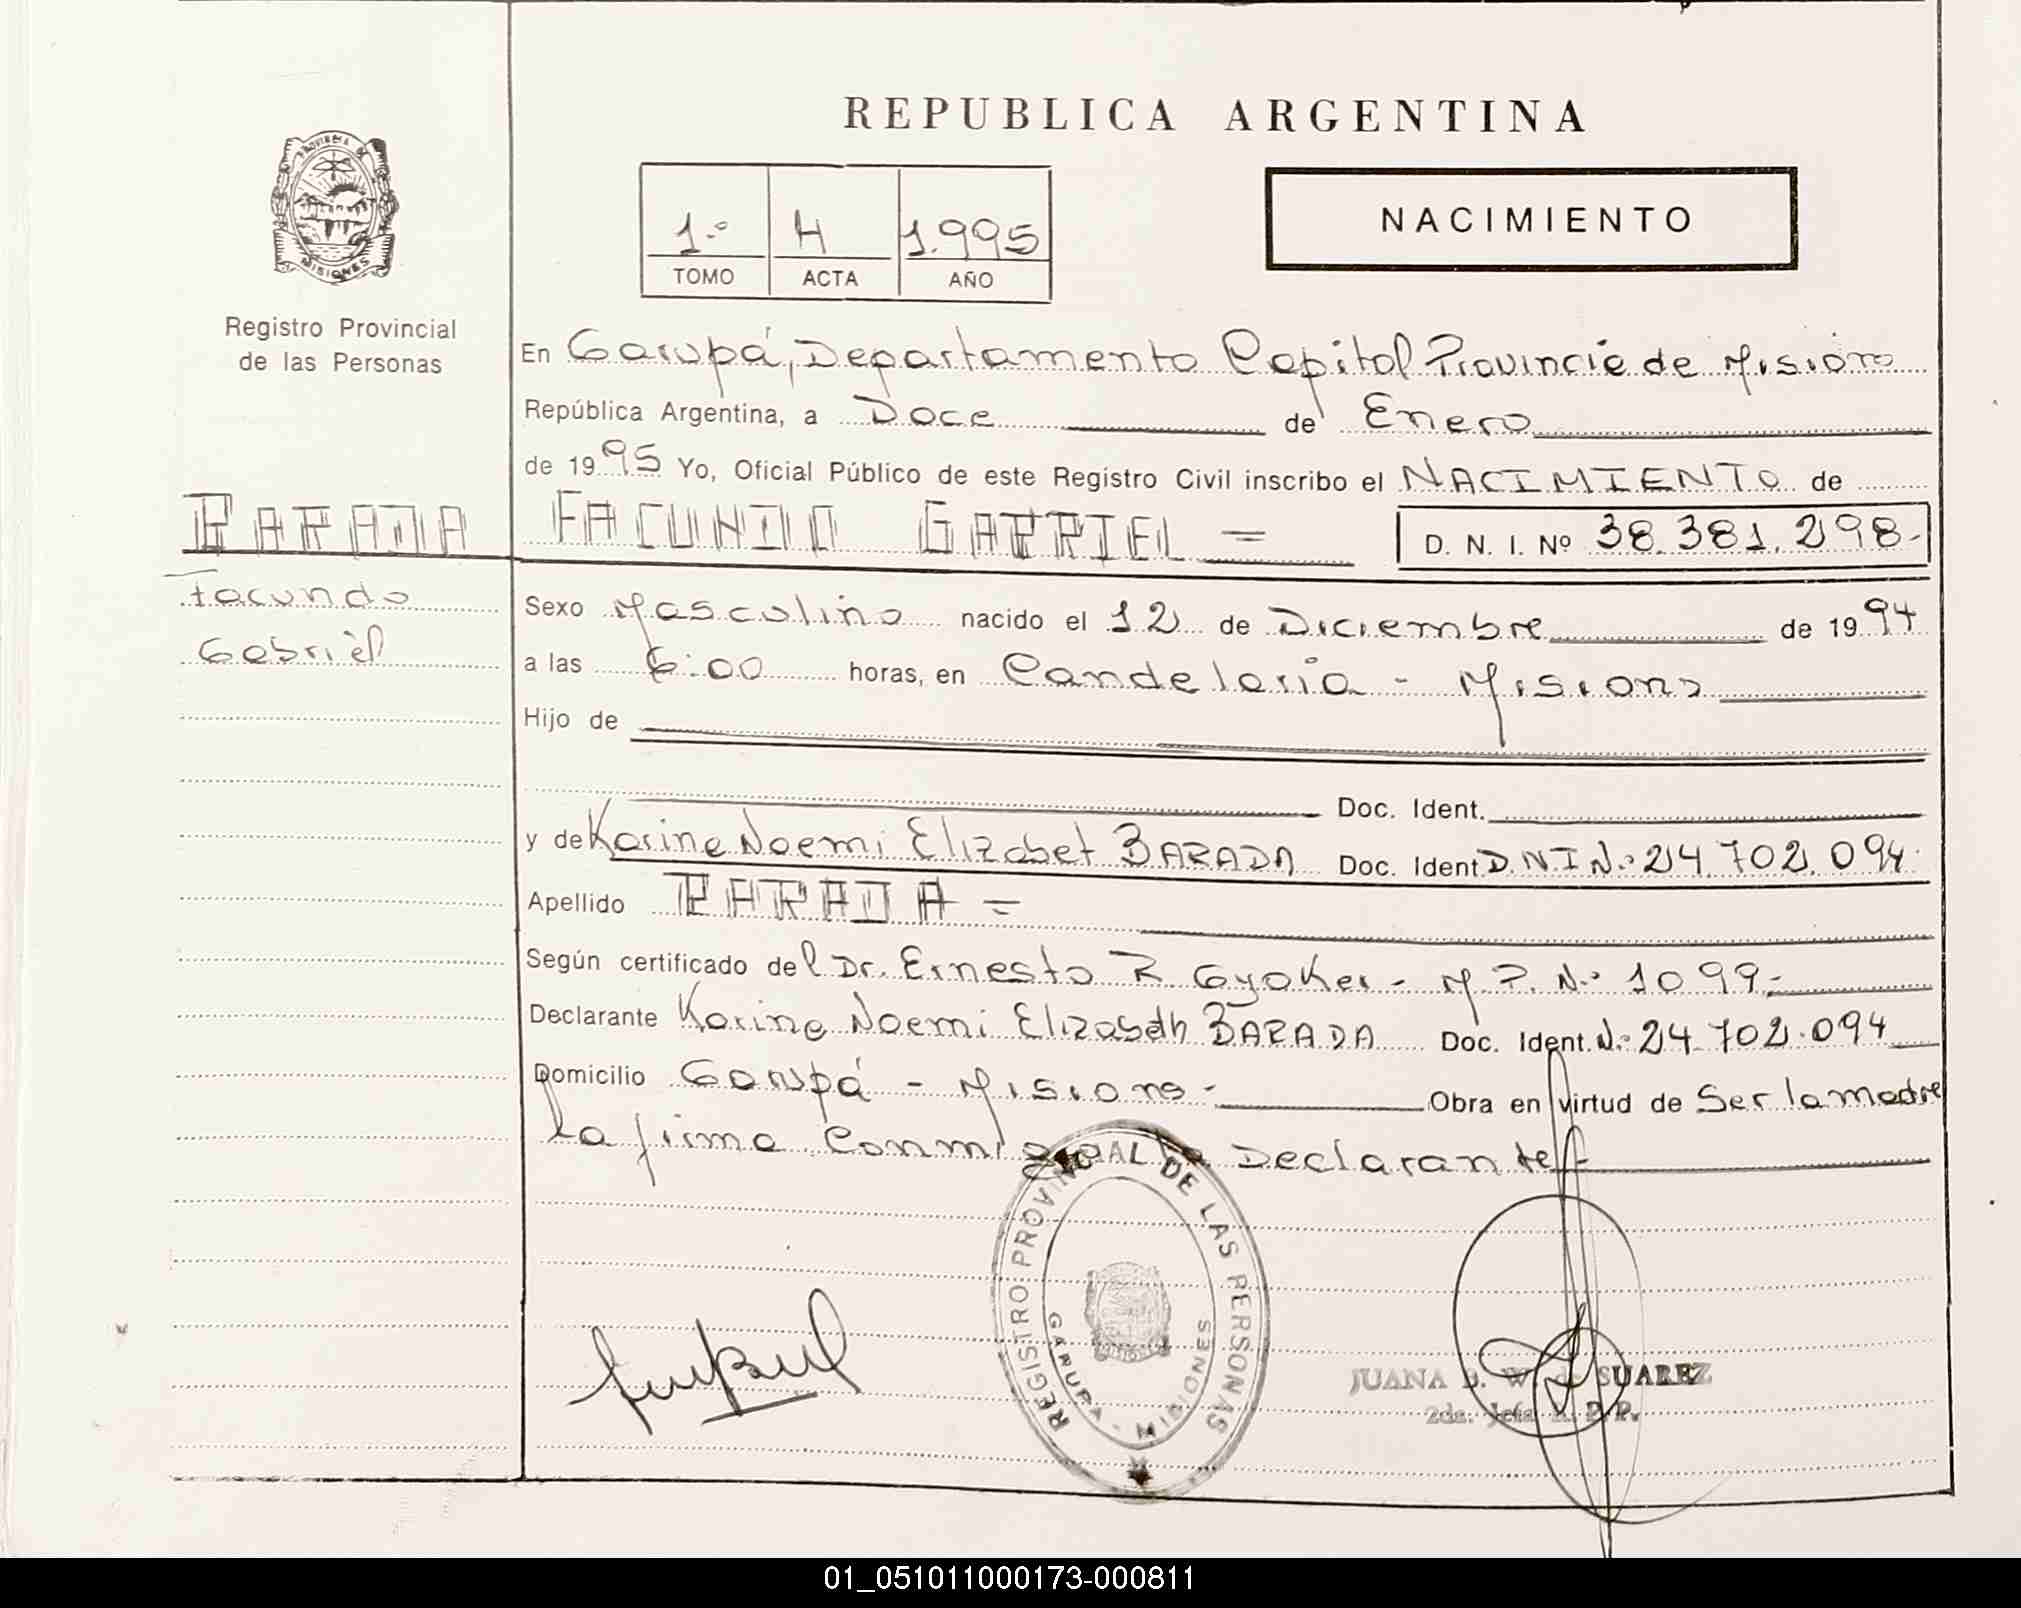 REPUBLICA ARGENTINA
PROVINCIA DE
MISIONES
Registro Provincial
de las Personas
1.º 4 1.995
TOMO ACTA AÑO
NACIMIENTO
En Garupá, Departamento Capital Provincia de Misiones
República Argentina, a Doce de Enero
de 1995 Yo, Oficial Público de este Registro Civil inscribo el NACIMIENTO de
BARADA FACUNDO GABRIEL = D. N. I. Nº 38.381.298-
Facundo
Gabriel
Sexo Masculino nacido el 12 de Diciembre de 1994
a las 6:00 horas, en Candelaria - Misiones
Hijo de
Doc. Ident.
y de Karina Noemi Elizabet BARADA Doc. Ident D.N.I N.º 24.702.094.
Apellido BARADA =
Según certificado del Dr. Ernesto R Gyoker - M P. N.º 1099.-
Declarante Karina Noemi Elizabeth BARADA Doc. Ident. N.º 24.702.094
Domicilio Garupá - Misiones - Obra en virtud de Ser la madre
La firma Conmigo la Declarante
REGISTRO PROVINCIAL DE LAS PERSONAS
GARUPA - MISIONES
JUANA B. W. de SUAREZ
2da. Jefa R. P. P.
01_051011000173-000811